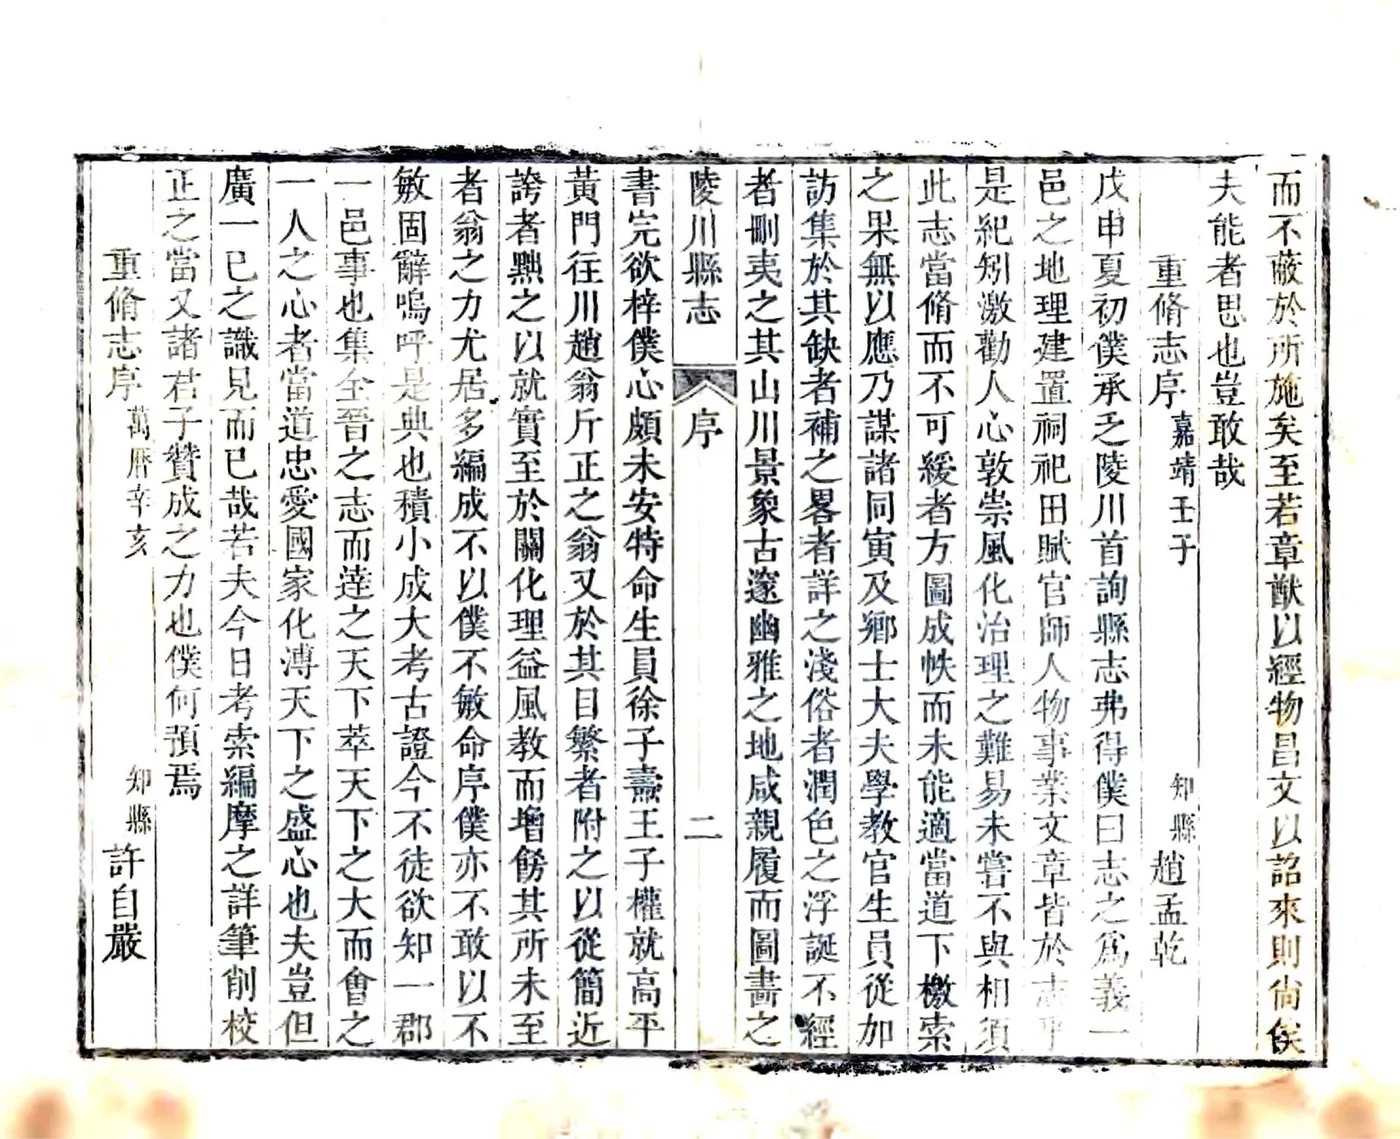 而不蔽於所施矣至若章猷以經物昌文以詔來則尙俟
夫能者思也豈敢哉
重脩志序 嘉靖壬子 知縣 趙孟乾
戊申夏初僕承乏陵川首詢縣志弗得僕曰志之爲義一
邑之地理建置祠祀田賦官師人物事業文章皆於志乎
是紀矧激勸人心敦崇風化治理之難易未嘗不與相須
此志當脩而不可緩者方圖成帙而未能適當道下檄索
之果無以應乃謀諸同寅及鄉士大夫學教官生員從加
訪集於其缺者補之畧者詳之淺俗者潤色之浮誕不經
者刪夷之其山川景象古邃幽雅之地咸親履而圖畵之
陵川縣志 序 二
書完欲梓僕心頗未安特命生員徐子燾王子權就高平
黃門往川趙翁斤正之翁又於其目繁者附之以從簡近
誇者黜之以就實至於關化理益風教而增餝其所未至
者翁之力尤居多編成不以僕不敏命序僕亦不敢以不
敏固辭嗚呼是典也積小成大考古證今不徒欲知一郡
一邑事也集全晉之志而達之天下萃天下之大而會之
一人之心者當道忠愛國家化溥天下之盛心也夫豈但
廣一已之識見而已哉若夫今日考索編摩之詳筆削校
正之當又諸君子贊成之力也僕何預焉
重脩志序 萬曆辛亥 知縣 許自嚴